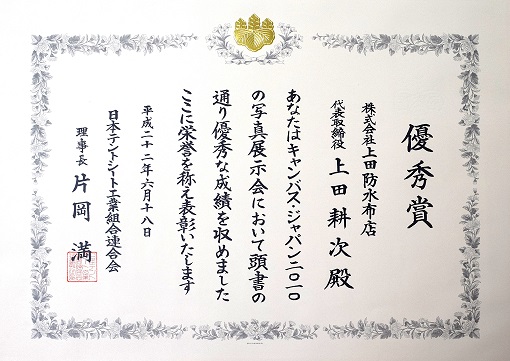 優秀賞
株式会社上田防水布店
代表取締役 上田耕次殿
あなたはキャンバス・ジャパン二〇一〇
の写真展示会において頭書の
通り優秀な成績を収めました
ここに栄誉を称え表彰いたします
平成二十二年六月十八日
日本テントシート工業組合連合会
理事長 片岡 満